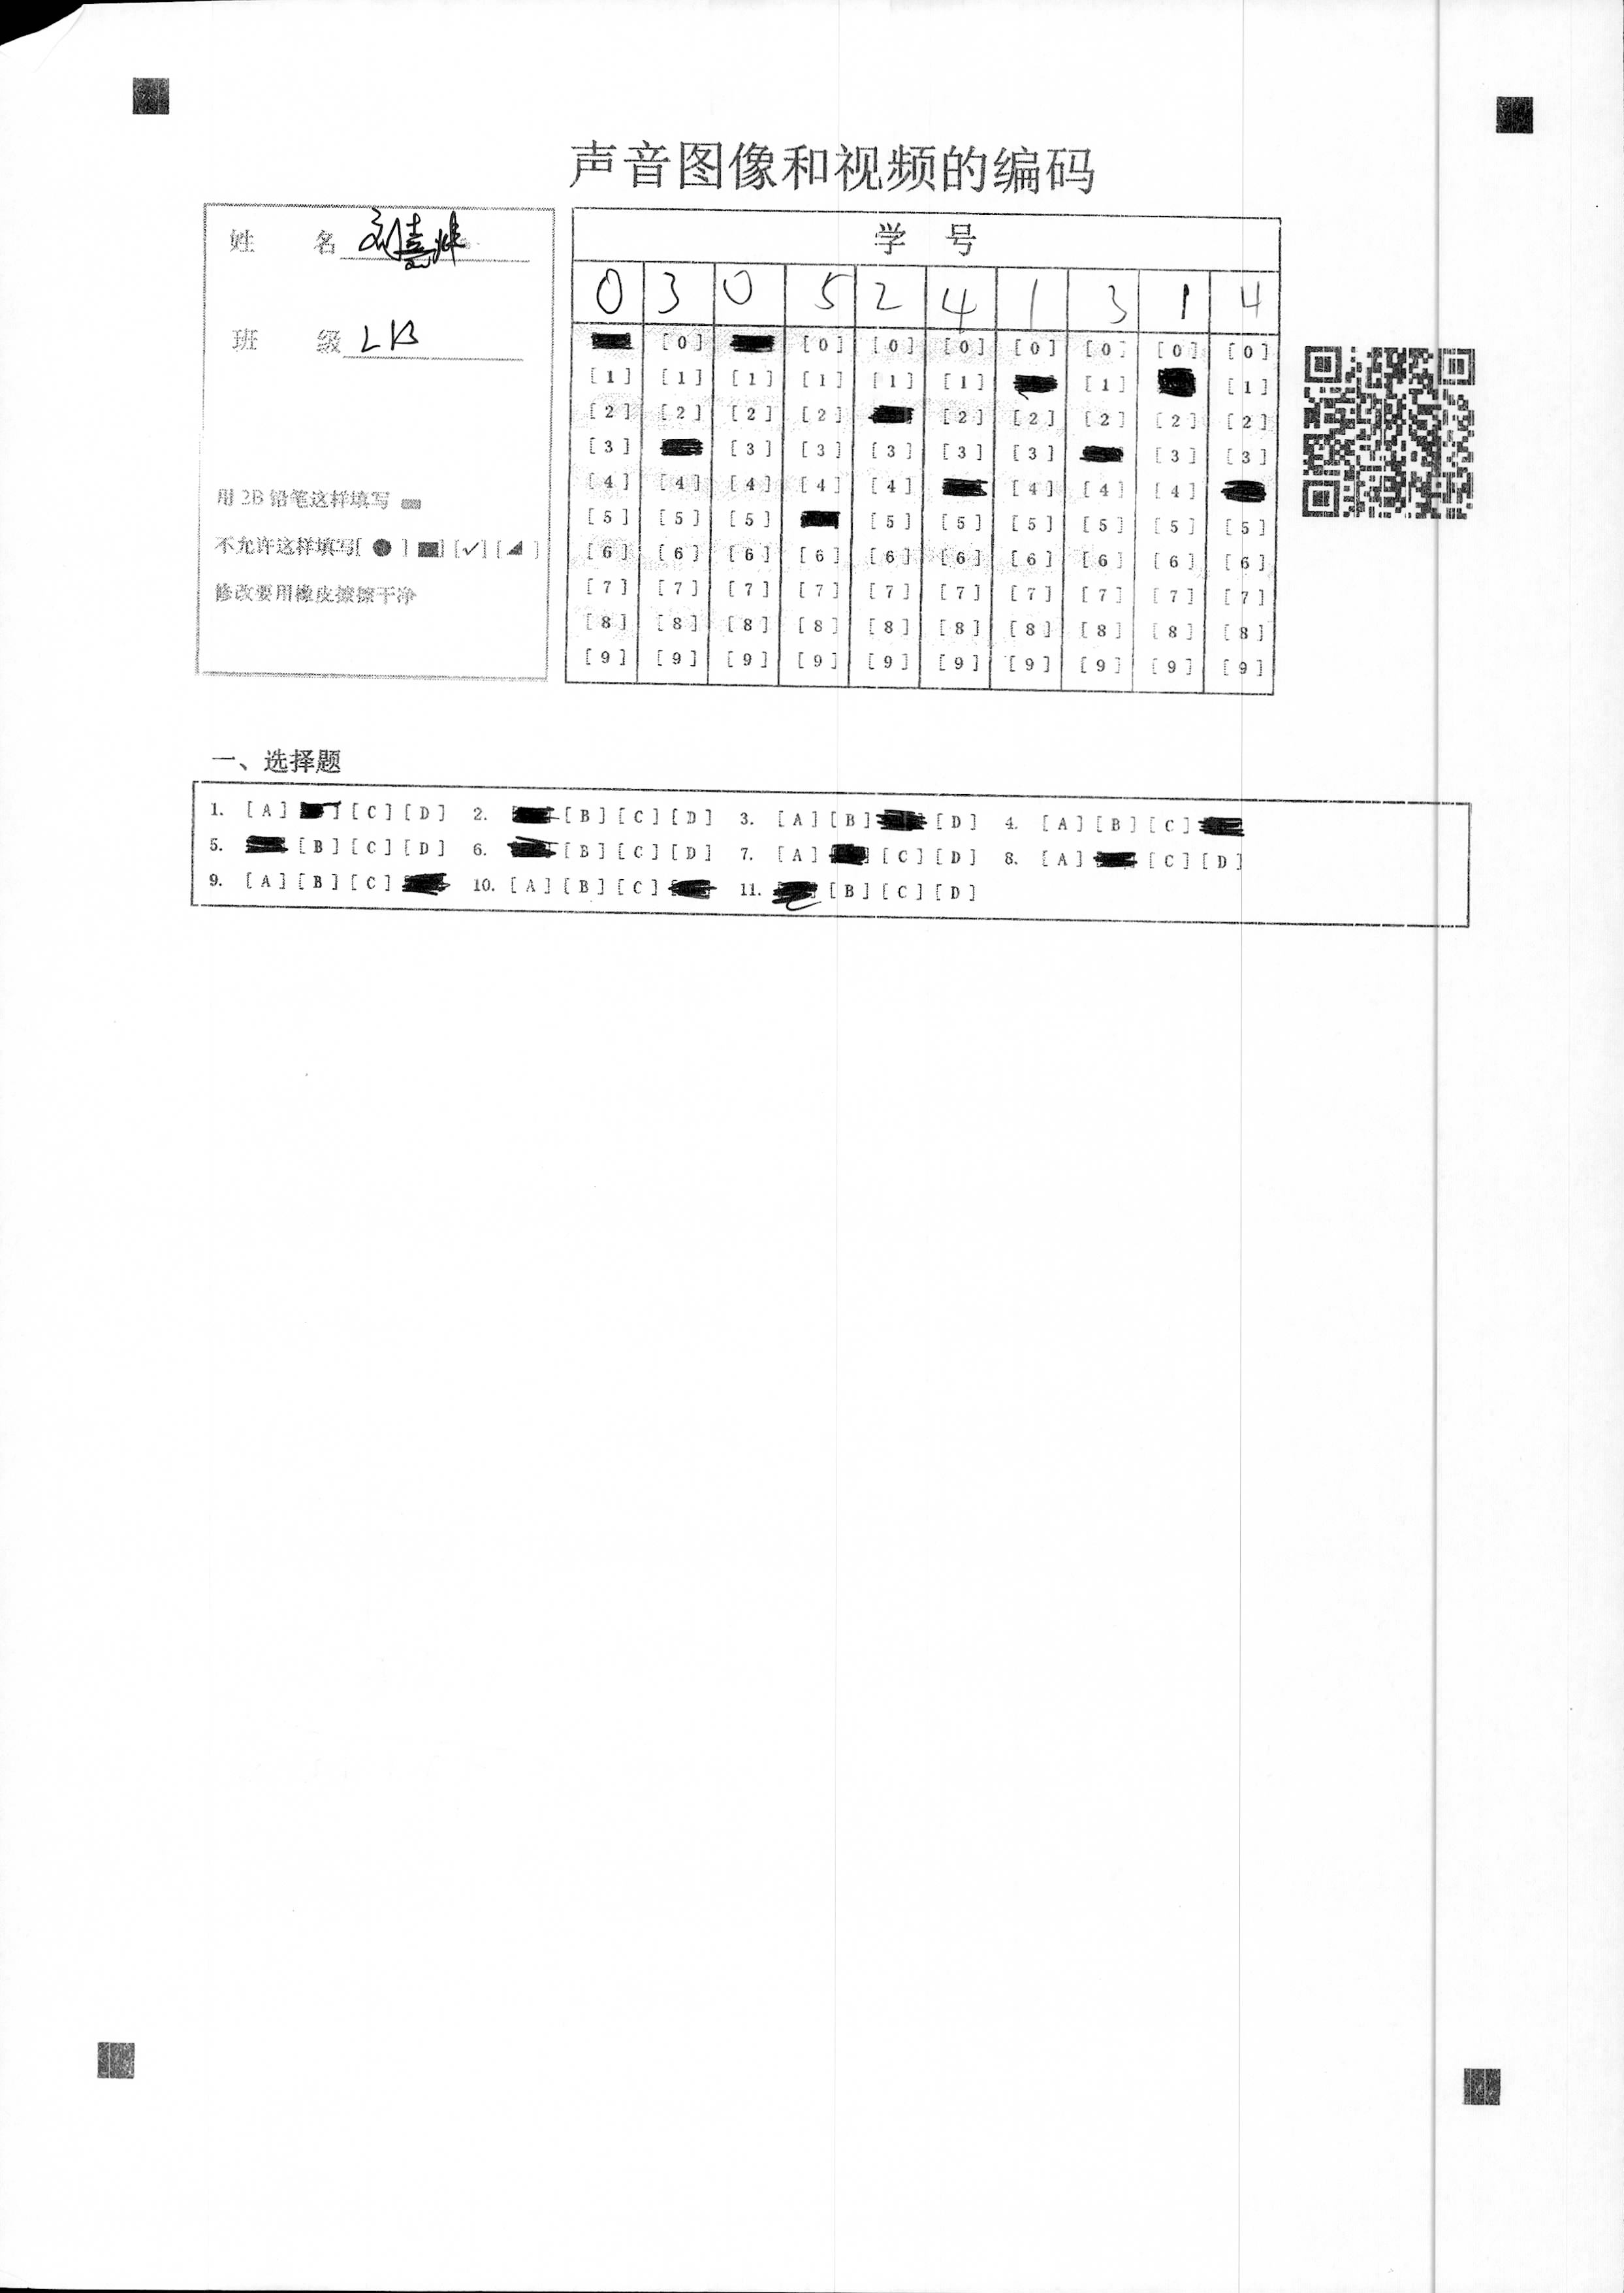 声音图像和视频的编码
姓 名
班 级
用 2B 铅笔这样填写
不允许这样填写[ ● ] ■] [✓] [ ◢ ]
修改要用橡皮擦擦干净
学 号
0 3 0 5 2 4 1 3 1 4
[0] [0] [0] [0] [0] [0] [0] [0]
[1] [1] [1] [1] [1] [1] [1] [1]
[2] [2] [2] [2] [2] [2] [2] [2] [2]
[3] [3] [3] [3] [3] [3] [3] [3]
[4] [4] [4] [4] [4] [4] [4] [4]
[5] [5] [5] [5] [5] [5] [5] [5] [5]
[6] [6] [6] [6] [6] [6] [6] [6] [6] [6]
[7] [7] [7] [7] [7] [7] [7] [7] [7] [7]
[8] [8] [8] [8] [8] [8] [8] [8] [8] [8]
[9] [9] [9] [9] [9] [9] [9] [9] [9] [9]
一、选择题
1. [A] [C] [D] 2. [B] [C] [D] 3. [A] [B] [D] 4. [A] [B] [C]
5. [B] [C] [D] 6. [B] [C] [D] 7. [A] [C] [D] 8. [A] [C] [D]
9. [A] [B] [C] 10. [A] [B] [C] 11. [B] [C] [D]